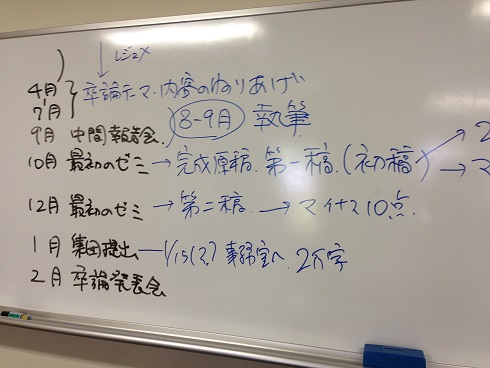 レジュメ
4月
7月
卒論テーマ・内容のねりあげ
8-9月 執筆
9月 中間報告会
10月 最初のゼミ → 完成原稿. 第一稿. (初稿)
12月 最初のゼミ → 第二稿. → マイナス10点.
1月 集団提出 — 1/15(?) 事務室へ. 2万字
2月 卒論発表会